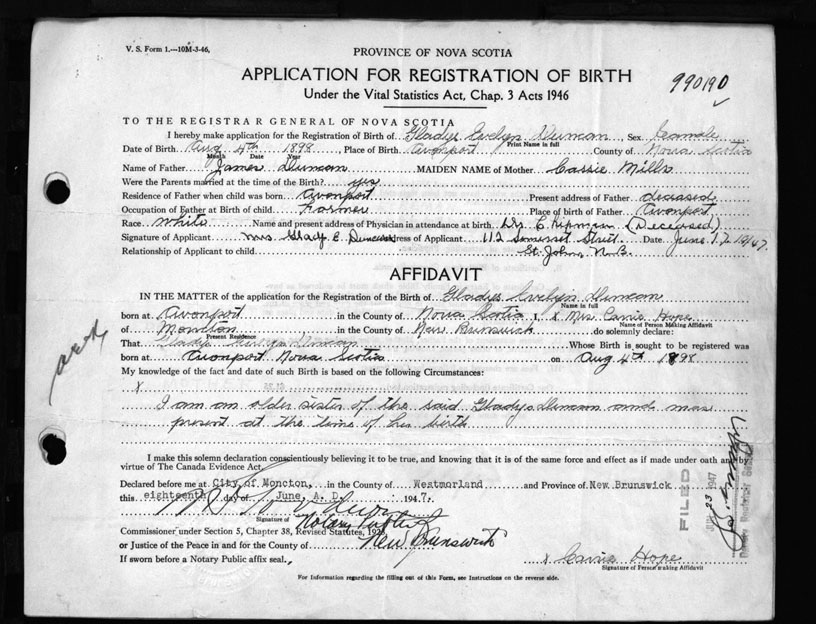 V. S. Form 1.—10M-3-46.
PROVINCE OF NOVA SCOTIA
APPLICATION FOR REGISTRATION OF BIRTH
990190
Under the Vital Statistics Act, Chap. 3 Acts 1946
TO THE REGISTRAR GENERAL OF NOVA SCOTIA
I hereby make application for the Registration of Birth of Gladys Evelyn Duncan, Sex Female
Print Name in full
Date of Birth Aug 4th 1898 Place of Birth Avonport County of Nova Scotia
Month Date Year
Name of Father James Duncan MAIDEN NAME of Mother Cassie Mills
Were the Parents married at the time of the Birth? yes
Residence of Father when child was born Avonport Present address of Father deceased
Occupation of Father at Birth of child Farmer Place of birth of Father Avonport
Race White Name and present address of Physician in attendance at birth (Deceased)
Signature of Applicant Mrs Gladys E. Duncan Address of Applicant 112 Somerset Street. Date June 17 1947
Relationship of Applicant to child St. John, N.B.
AFFIDAVIT
IN THE MATTER of the application for the Registration of the Birth of Gladys Evelyn Duncan
Name in full
born at Avonport in the County of Nova Scotia I, x Mrs. Carrie Hope
Name of Person Making Affidavit
of Moncton in the County of New Brunswick do solemnly declare:
Present Residence
That Gladys Evelyn Duncan Whose Birth is sought to be registered was
born at Avonport Nova Scotia on Aug 4th 1898
My knowledge of the fact and date of such Birth is based on the following Circumstances:
x
I am an older sister of the said Gladys Duncan and was
present at the time of his birth
I make this solemn declaration conscientiously believing it to be true, and knowing that it is of the same force and effect as if made under oath and by
virtue of The Canada Evidence Act.
Declared before me at City of Moncton, in the County of Westmorland and Province of New Brunswick
this eighteenth day of June, A. D. 1947.
Signature of
Notary Public
Commissioner under Section 5, Chapter 38, Revised Statutes, 1923
or Justice of the Peace in and for the County of New Brunswick
If sworn before a Notary Public affix seal. x Carrie Hope
Signature of Person making Affidavit
For Information regarding the filling out of this Form, see Instructions on the reverse side.
FILED
23 1947